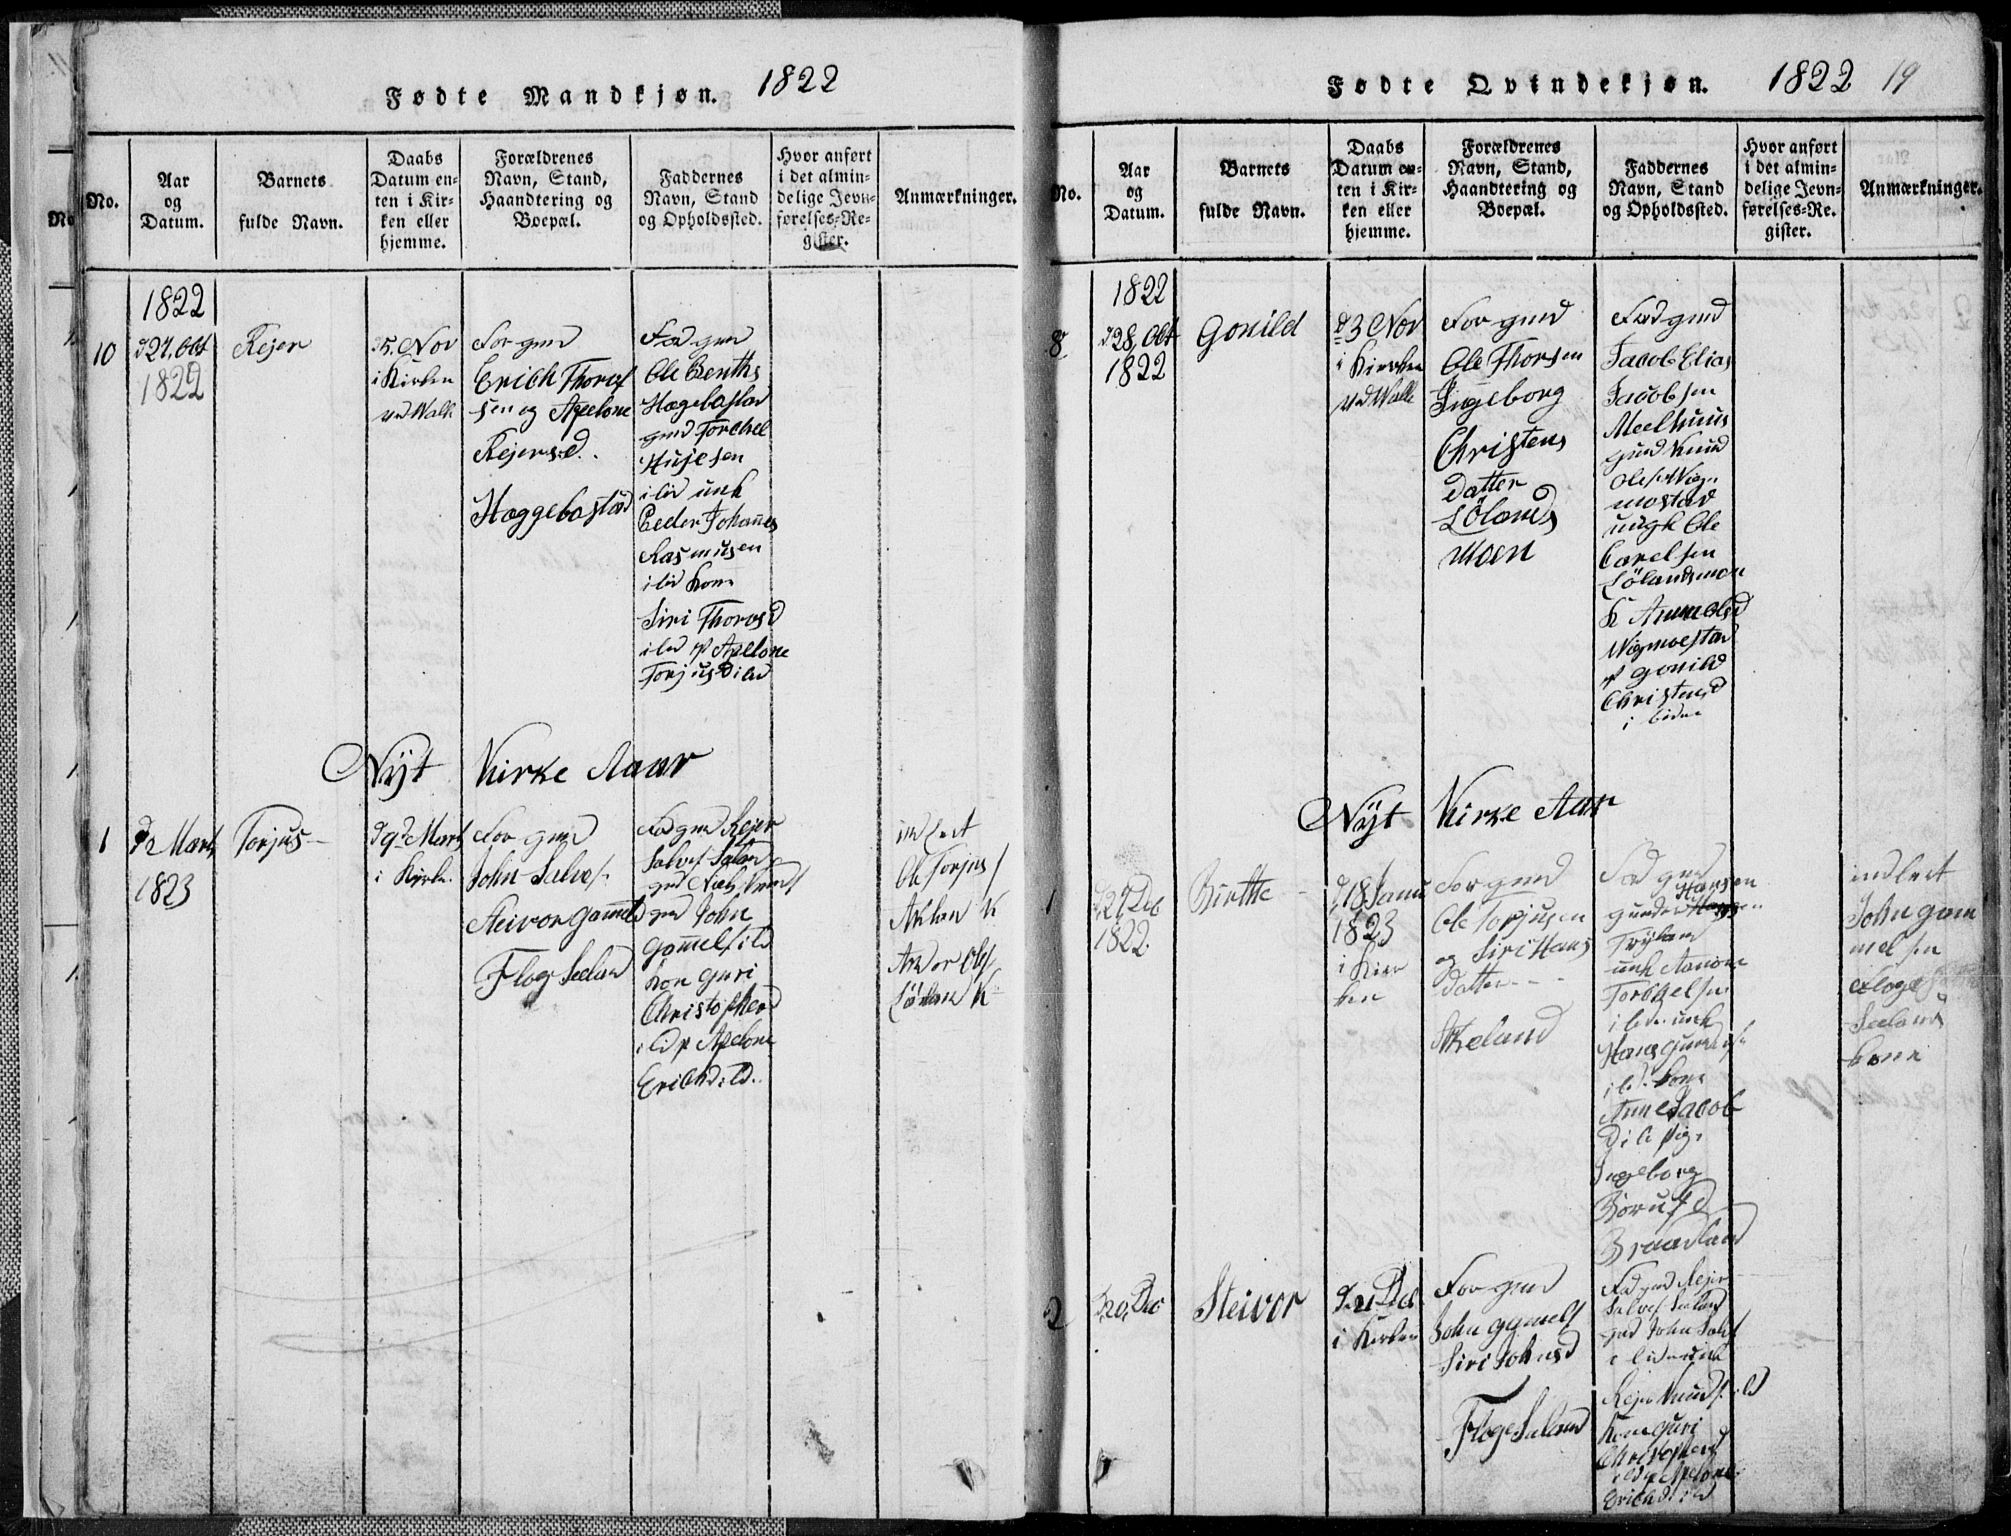 Fødte Mandkjøn. 1822
No.
Aar
og
Datum.
Barnets
fulde Navn.
Daabs
Datum en-
ten i Kir-
ken eller
hjemme.
Forældrenes
Navn, Stand,
Haandtering og
Boepæl.
Faddernes
Navn, Stand
og Opholdssted.
Hvor anført
i det almin-
delige Jevn-
førelses-Re-
gister.
Anmærkninger.
1822
10
d 27. Oct
1822
Rejer
d 5. Nov
i Kirken
ved Walle
For gmd
Erich Thores
sen og Apelone
Rejersd.
Hæggebostad
Fad gmd
Ole Benths
Hægebostad
gmd Torchel
Hujesen
i lid unk
Peder Johannes
Rasmusen
i lid kone
Siri Thoresd
i lid p Apelone
Torjusd i lid
Nyt Kirke Aaar
1
d 2 Marts
1823
Torjus
d 9de Marts
i Kirke.
For gmd
John Salves.
Steivor Gamels
Floge Seeland
Fad gmd Rejer
Salves Seland
gmd
gmd John
Gammels i lid
kon Guri
Christopherd
i lid p Apelone
Erichsd i ld.
Ole Torjus
K
Fødte Qvindekjøn. 1822 19
No.
Aar
og
Datum.
Barnets
fulde Navn.
Daabs
Datum en-
ten i Kir-
ken eller
hjemme.
Forældrenes
Navn, Stand,
Haandtering og
Boepæl.
Faddernes
Navn, Stand
og Opholdssted.
Hvor anført
i det almin-
delige Jevn-
førelses-Re-
gister.
Anmærkninger.
1822
8
d 28. Oct
1822
Gonild
d 3 Nov
i Kirken
ved Walle
For gmd
Ole Thorsen
Ingeborg
Christens
datter
Lölands
moen
Fad gmd
Jacob Elias
Jacobsen
Meelhuus
gmd Knud
Oles Wig-
mostad
ungk Ole
Carelsen
Lölandsmoen
K Anne Olsd
Wigmostad
p Gonild
Christensd
i lid
Nyt Kirke Aar
1
d 27 Dec
1822
Birthe
d 18 Janu
1823
i Kir
ken
For gmd
Ole Torjusen
og Siri Hans
datter
Akeland
Fad gmd
Gunder Hansen
Tryland
unk
Torkelsen
i lid unk
Hans
i ld. kone
Anne Jacob
D i li pig.
Ingeborg
D
Braadland
indlert
John Gam
melsen
Floge
Seeland
kone
2
d 20 Dec
Steivor
d 21 Dec
i Kirken
For gmd
John Gamels
Siri Johnsd
Floge Seland
Fad gmd Rejer
Salves Seeland
gmd John Salves
i lid unk
Rejer Knuds i ld
Kone Guri
Christopherd
i ld p Apelone
Erichsd i ld